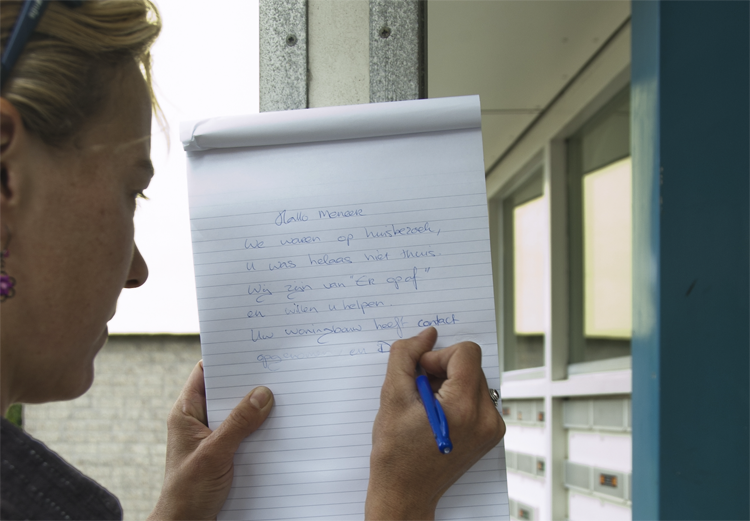 Hallo Meneer
We waren op huisbezoek,
u was helaas niet thuis.
Wij zijn van "Er op af"
en willen u helpen.
Uw woningbouw heeft contact
en D